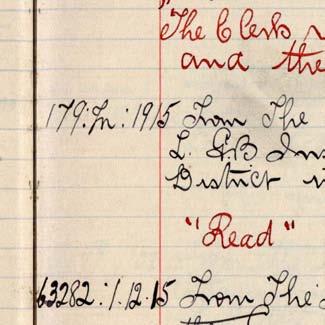 The Clerk
and the
179:In:1915 From The
L. G.B Ins
District
"Read"
63282:1.12.15 From The